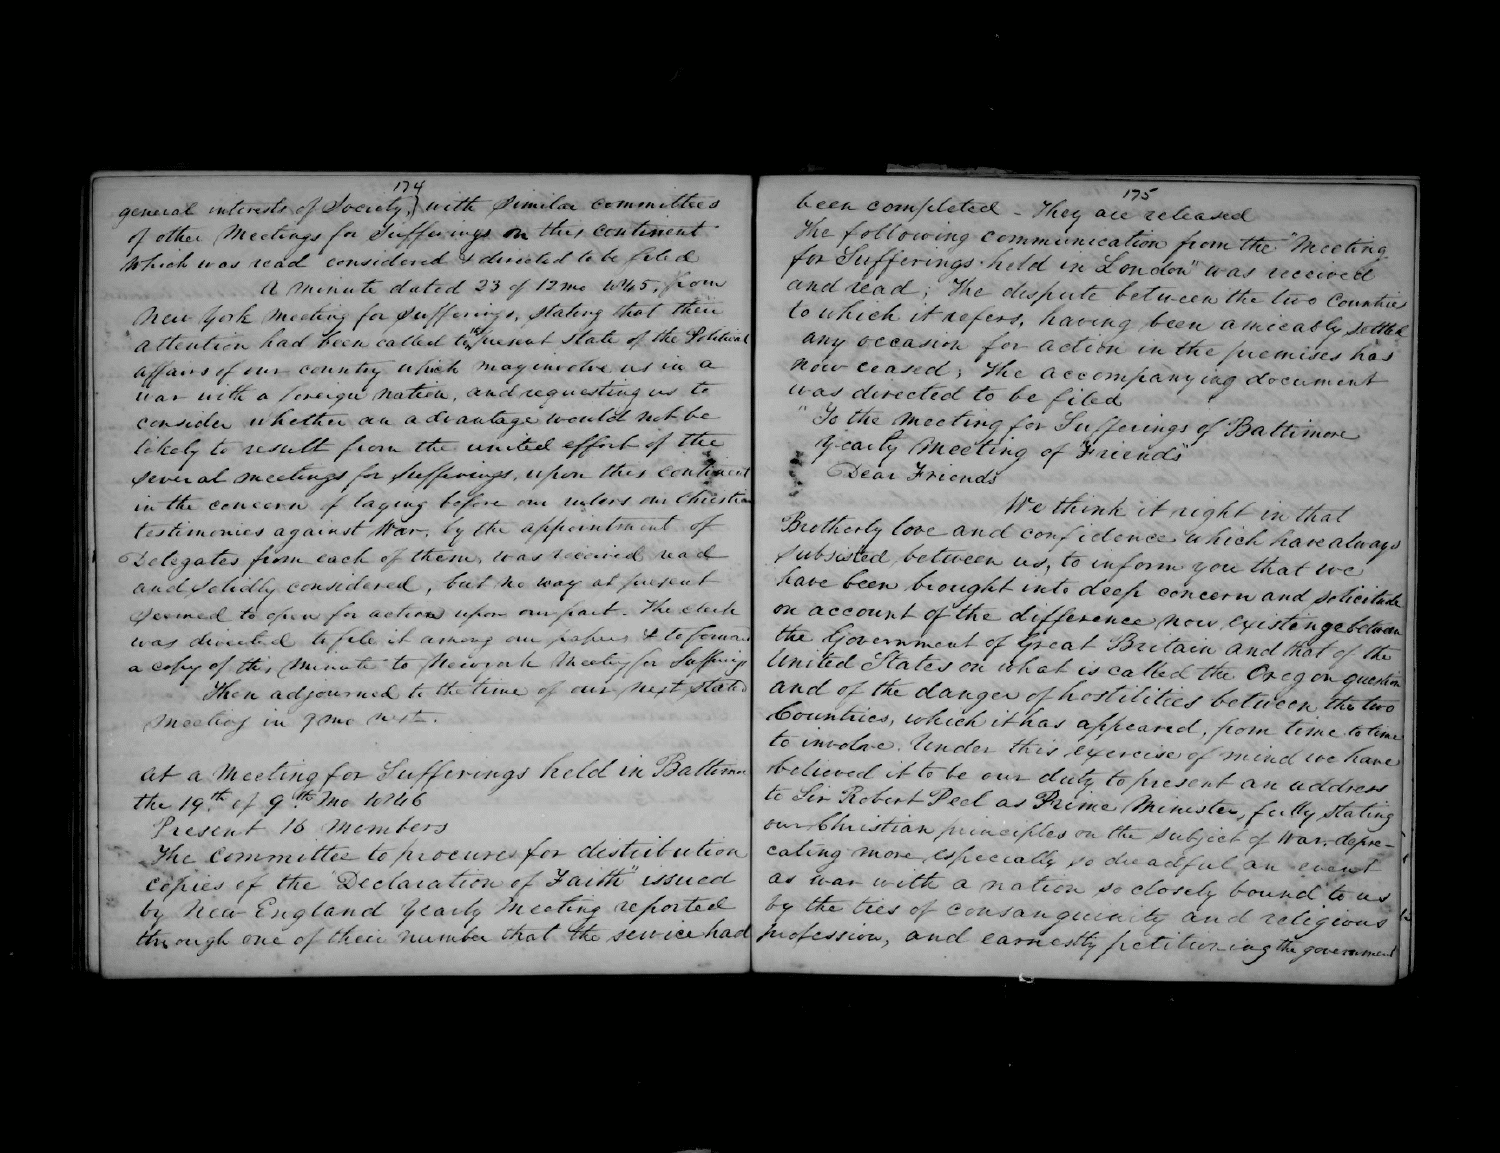 174
general interests of Society,) with similar committees
of other Meetings for Sufferings on this continent
which was read considered & directed to be filed
A minute dated 23 of 12mo 1845, from
New York Meeting for Sufferings, stating that their
attention had been called to the present state of the Political
affairs of our country which may involve us in a
war with a foreign nation, and requesting us to
consider whether an advantage would not be
likely to result from the united effort of the
several meetings for Sufferings, upon this continent
in the concern of laying before our rulers our Christian
testimonies against War, by the appointment of
Delegates from each of them, was received read
and solidly considered, but no way at present
seemed to open for action upon our part. The clerk
was directed to file it among our papers & to forward
a copy of this minute to New York Meeting for Sufferings
Then adjourned to the time of our next stated
meeting in 9mo next.
At a Meeting for Sufferings held in Baltimore
the 19th of 9th Mo 1846
Present 16 members
The committee to procure for distribution
copies of the "Declaration of Faith" issued
by New England Yearly Meeting reported
through one of their number that the service had
175
been completed - They are released
The following communication from the "Meeting
for Sufferings held in London" was received
and read; The dispute between the two Countries
to which it refers, having been amicably settled
any occasion for action in the premises has
now ceased; The accompanying document
was directed to be filed
"To the Meeting for Sufferings of Baltimore
Yearly Meeting of Friends"
Dear Friends
We think it right in that
Brotherly love and confidence which have always
subsisted between us, to inform you that we
have been brought into deep concern and solicitude
on account of the difference now existing between
the Government of Great Britain and that of the
United States on what is called the Oregon question
and of the danger of hostilities between the two
Countries, which it has appeared, from time to time
to involve. Under this exercise of mind we have
believed it to be our duty to present an address
to Sir Robert Peel as Prime Minister, fully stating
our Christian principles on the subject of War, depre-
cating more especially so dreadful an event
as war with a nation so closely bound to us
by the ties of consanguinity and religious
profession, and earnestly petitioning the government